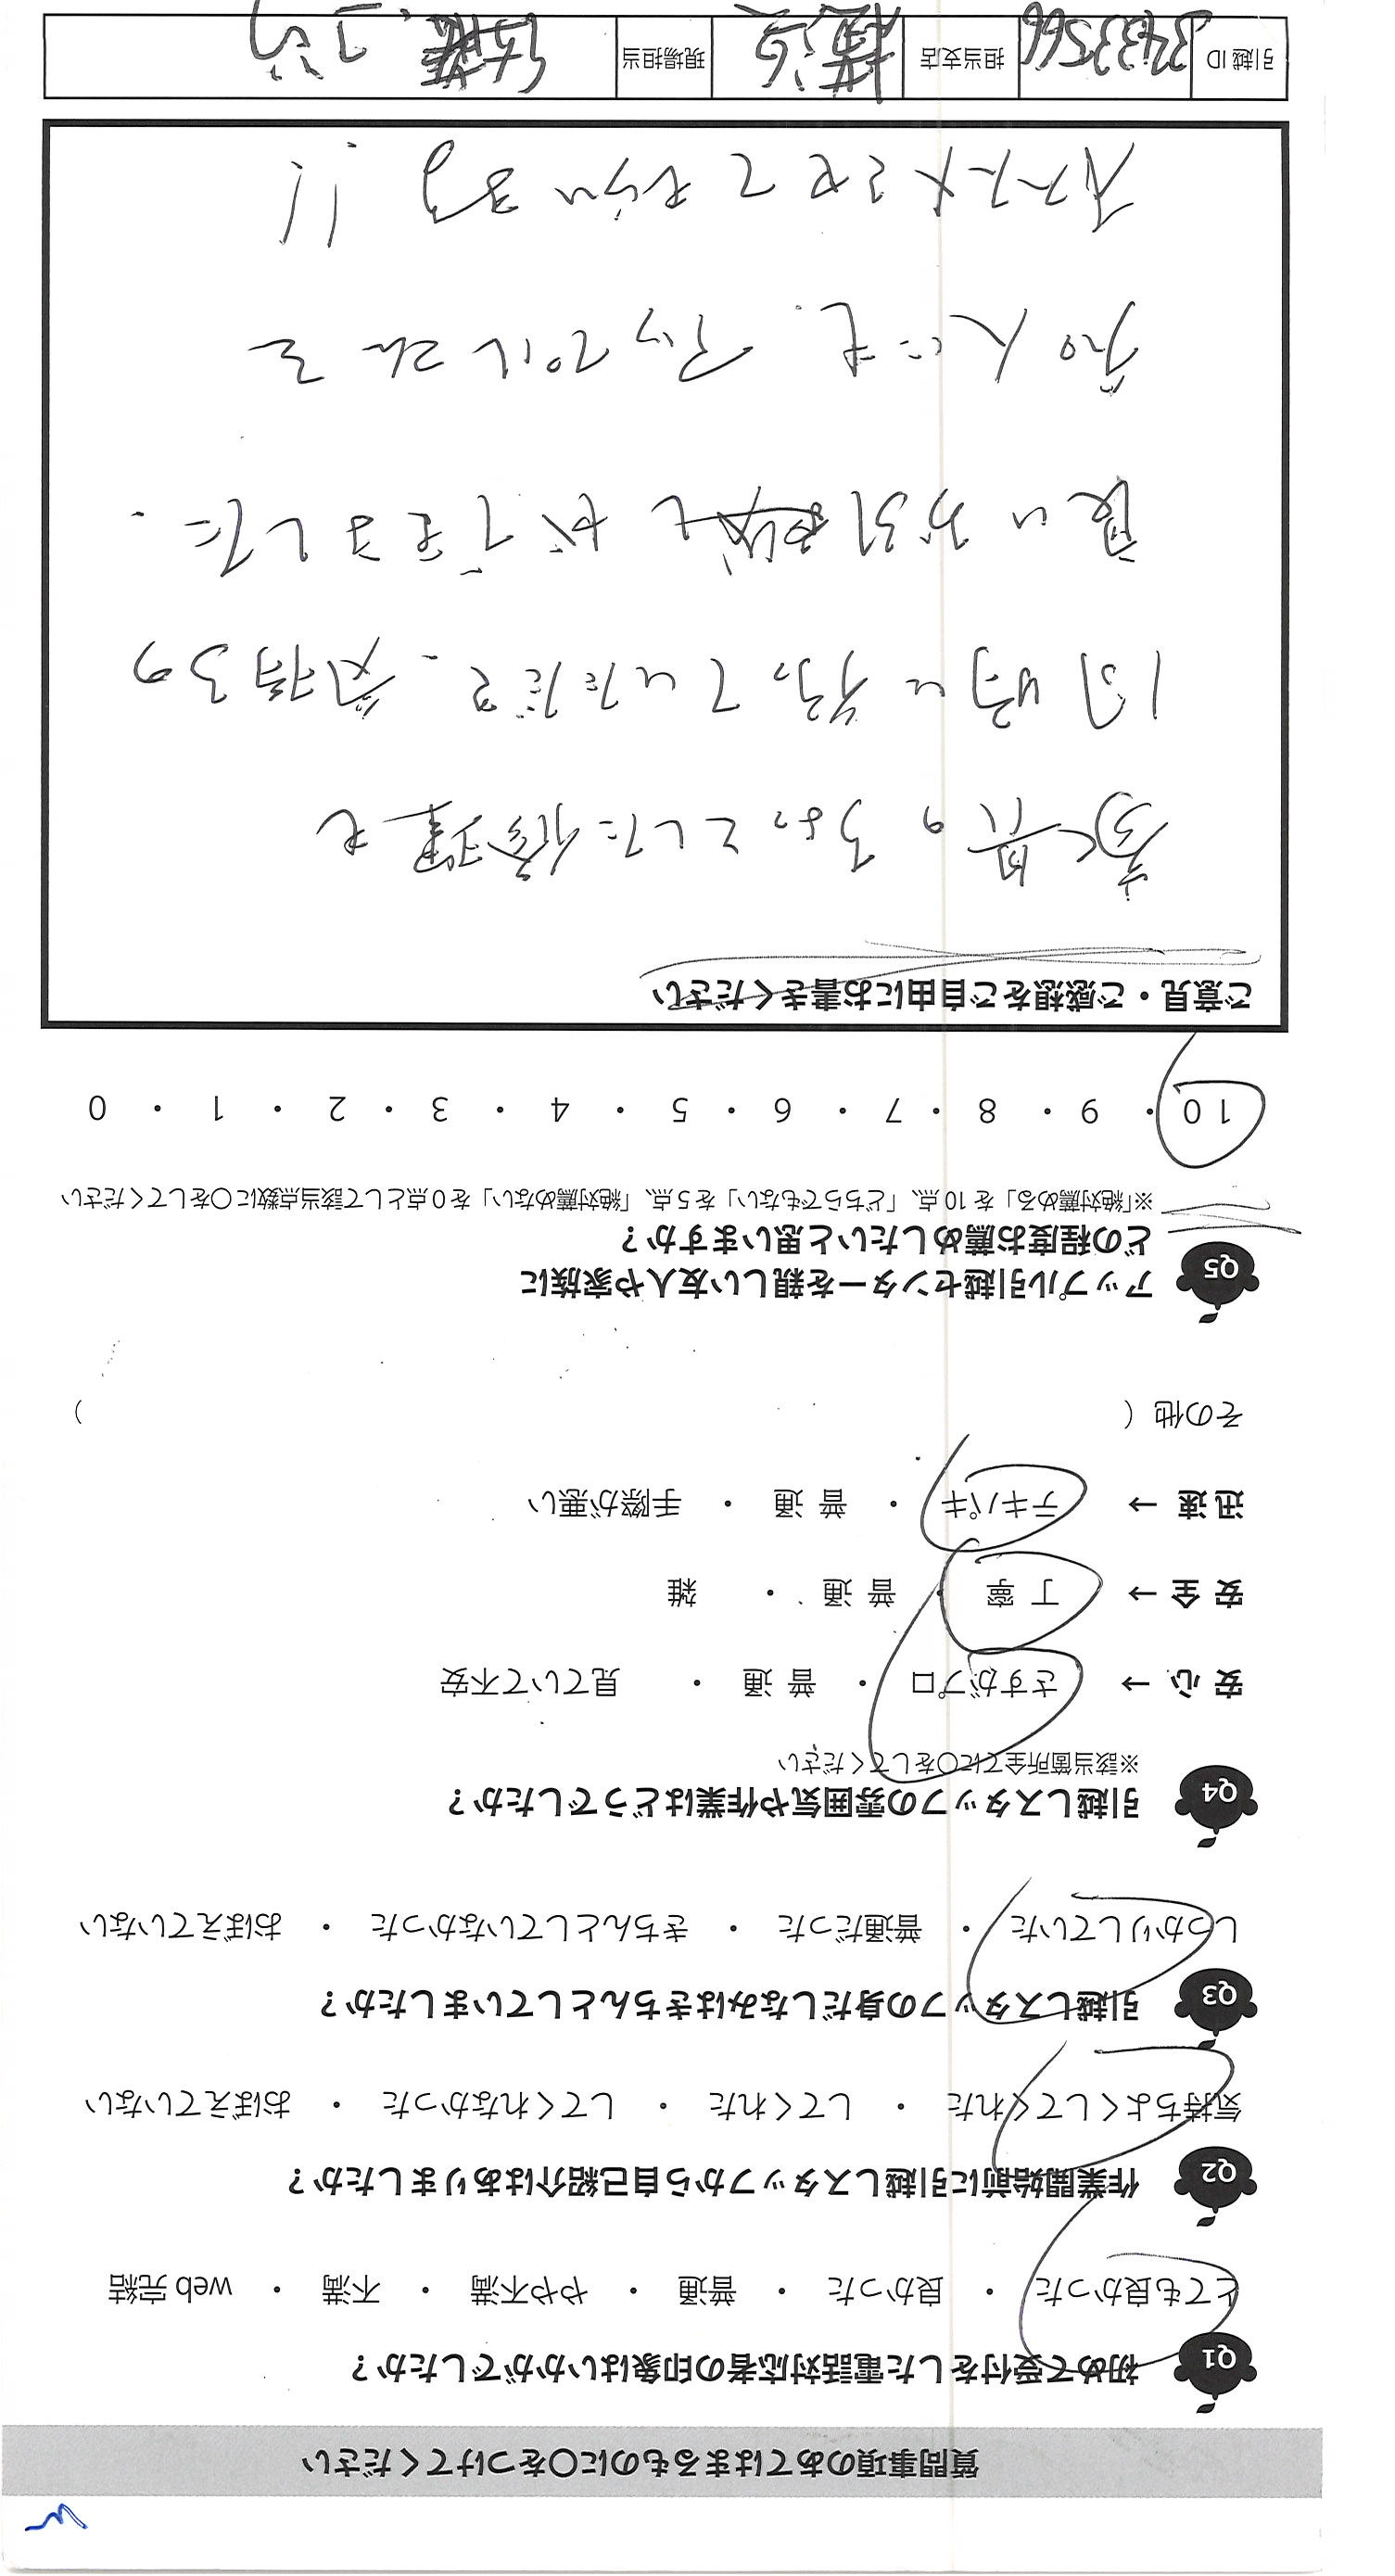 質問事項のあてはまるものに○をつけてください
Q1 初めて受付をした電話対応者の印象はいかがでしたか？
とても良かった ・ 良かった ・ 普通 ・ やや不満 ・ 不満 ・ web 完結
Q2 作業開始前に引越しスタッフから自己紹介はありましたか？
気持ちよくしてくれた ・ してくれた ・ してくれなかった ・ おぼえていない
Q3 引越しスタッフの身だしなみはきちんとしていましたか？
しっかりしていた ・ 普通だった ・ きちんとしていなかった ・ おぼえていない
Q4 引越しスタッフの雰囲気や作業はどうでしたか？
※該当箇所全てに○をしてください
安 心 → さすがプロ ・ 普 通 ・ 見ていて不安
安 全 → 丁 寧 ・ 普 通 ・ 雑
迅 速 → テキパキ ・ 普 通 ・ 手際が悪い
その他（ ）
Q5 アップル引越センターを親しい友人や家族に
どの程度お薦めしたいと思いますか？
※「絶対薦める」を 10 点、「どちらでもない」を 5 点、「絶対薦めない」を 0 点として該当点数に○をしてください
10 ・ 9 ・ 8 ・ 7 ・ 6 ・ 5 ・ 4 ・ 3 ・ 2 ・ 1 ・ 0
ご意見・ご感想をご自由にお書きください
家具の ちょっとした修理も
同時に 行っていただき、気持ちの
良いお引越しができました.
知人にも アップルさんを
オススメさせてもらいます!!
引越 ID 3433566 担当支店 横浜 現場担当 佐藤